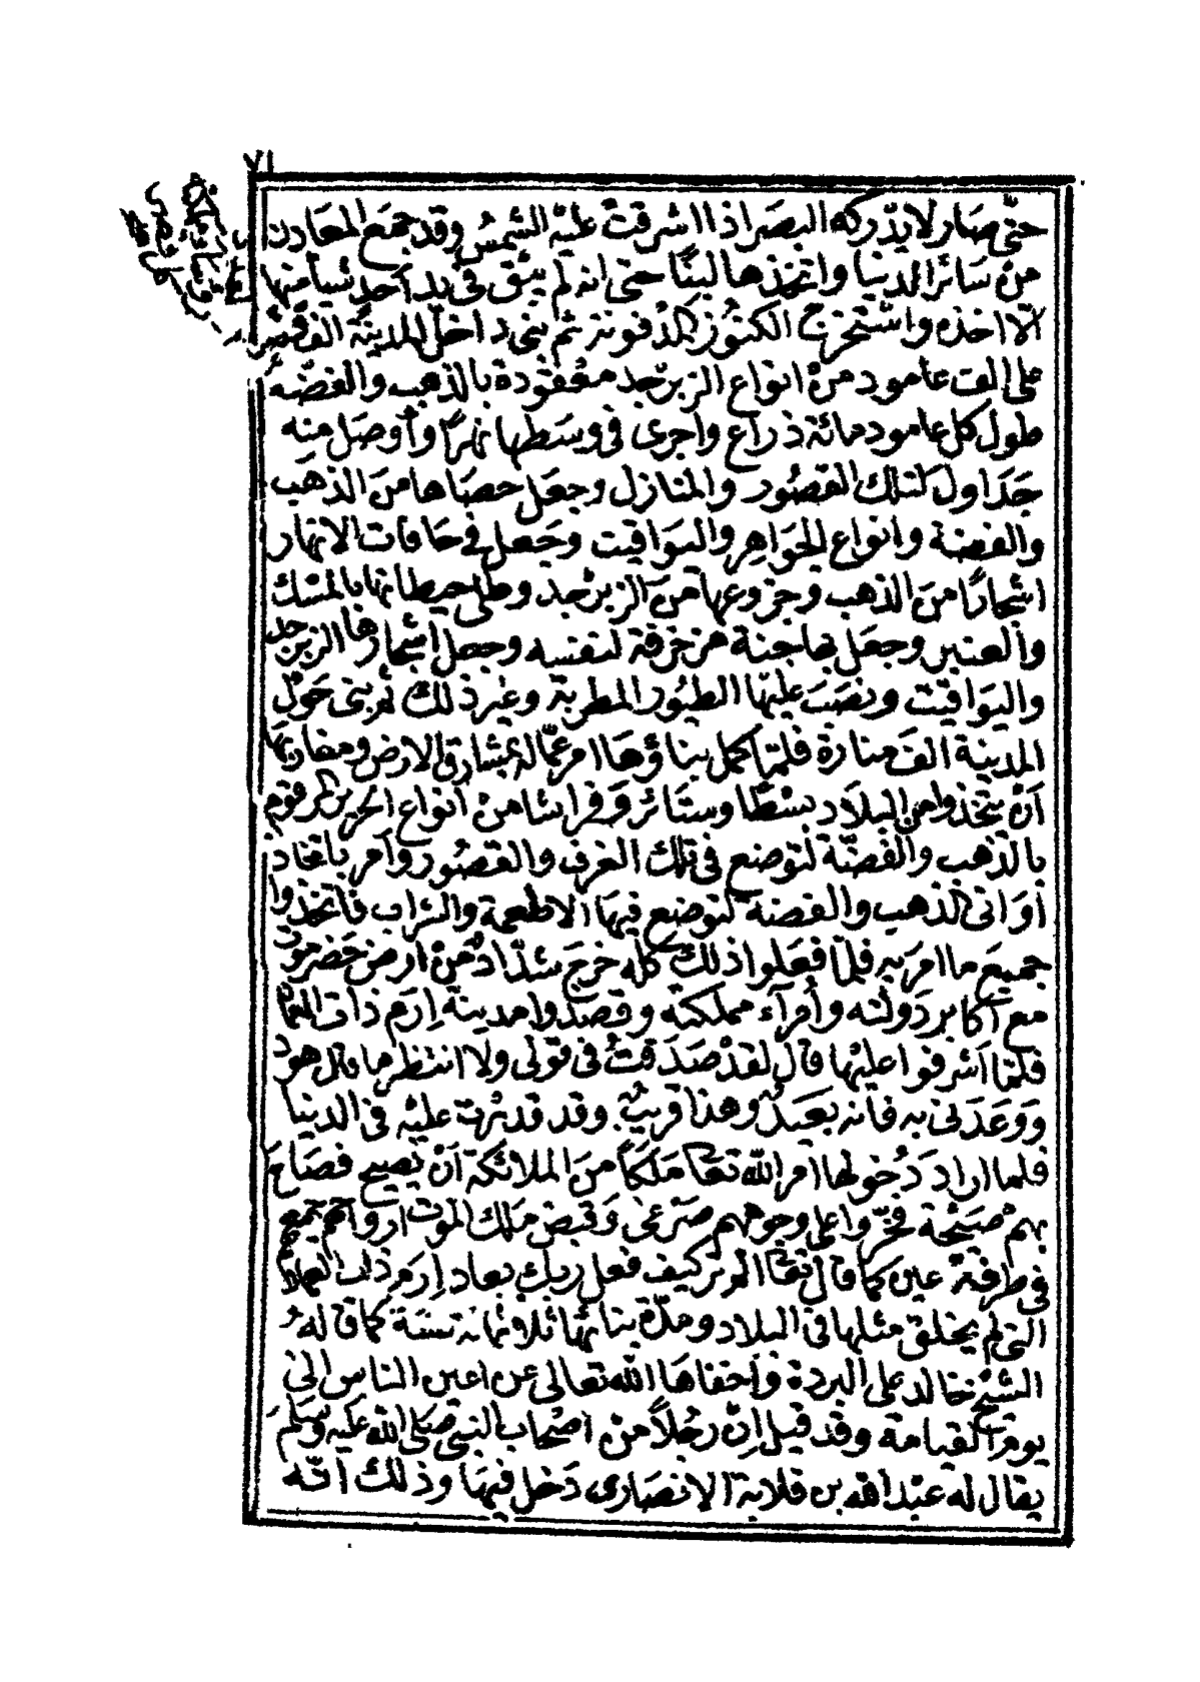 ٧١
حتّى صَار لا يدّركه البصَر اذا اشرقتْ عليْه الشمسُ وقد جمَع المعَادن
منْ سَائر الدنيا واتخذها لبنًا حتى انه لم يبْق فى يد أحدٍ شيأ منها
الّا اخذه واسْتخرج الكنوُز المدْفونة ثم بنى داخل المدينة الف قصْر
على الف عامود منْ انواع الزبرْجد معْقودة بالذهب والفضّة
طول كل عامود مائة ذراع واجرى فى وسَطها نهرًا وأوصَل منه
جَدَاول لتلك القصُور والمنازل وجعَل حصَاها منَ الذهَب
والفضة وانواع الجَواهِر واليَواقيت وجَعل فى حَافات الانهار
اشجارًا منَ الذهب وجزوعها منَ الزبرْجد وطلى حيطانها بالمسْك
والعنبر وجعَل بها جنة مزخرفة لنفسه وجعل اشجارها الزبرجد
واليَواقيت ونصَبَ عليْها الطيُور المطربة وغيْر ذلك ثم بنى حَوْل
المدينة الفَ منارة فلمّا كمل بناؤهَا امر عمّاله بمشارق الارض ومغاربها
أنْ يتخذوا من البلَاد بسْطًا وستَائر وَفراشا منْ انواع الحرير المرقوم
بالذهب والفضّة لتوضع فى تلك الغرف والقصُور وأمر باتخاد
أوَانى الذهب والفضة لتوضع فيهَا الاطعمة والشراب فاتخذوا
جميعَ ما امرَ به فلمّا فعَلوا ذلك كله خرجَ شدّادٌ منْ ارض حَضرموت
مع أكابر دَولته وأمرآء مملكته وقصَدوا مدينة اِرَم ذات العماد
فلمّا اَشرفوا عليْها قال لقدْ صَدَقتُ فى قولى ولا انتظر ما قال هود
وَوعَدَنى به فانه بعَيدٌ وهذا قريبٌ وقد قدَرْت عليْه فى الدنيا
فلما اراد دُخولها امر الله تعَا مَلَكًا منَ الملائكة أنْ يَصيح فصَاحَ
بهمْ صَيْحة فخرّوا على وجوههم صَرْعى وَقبض مَلك الموْت ارواحهم جميع
فى طرفة عين كما قال تعَا الم تر كيف فعل ربك بعاد اِرَم ذات العماد
التى لم يخلق مثلها فى البلاد ومدّة بنائها ثلاثمائة سَنَة كما قاله
الشيْخ خالد على البردة وأخفاهَا الله تعالى عن اعين الناس الى
يوم القيامة وقد قيل اِنّ رجُلاً منْ اصْحاب النبى صَلى الله عليه وسَلم
يقال له عبْد الله بن قلابة الانصَارى دَخل فيهَا وذلك انّه